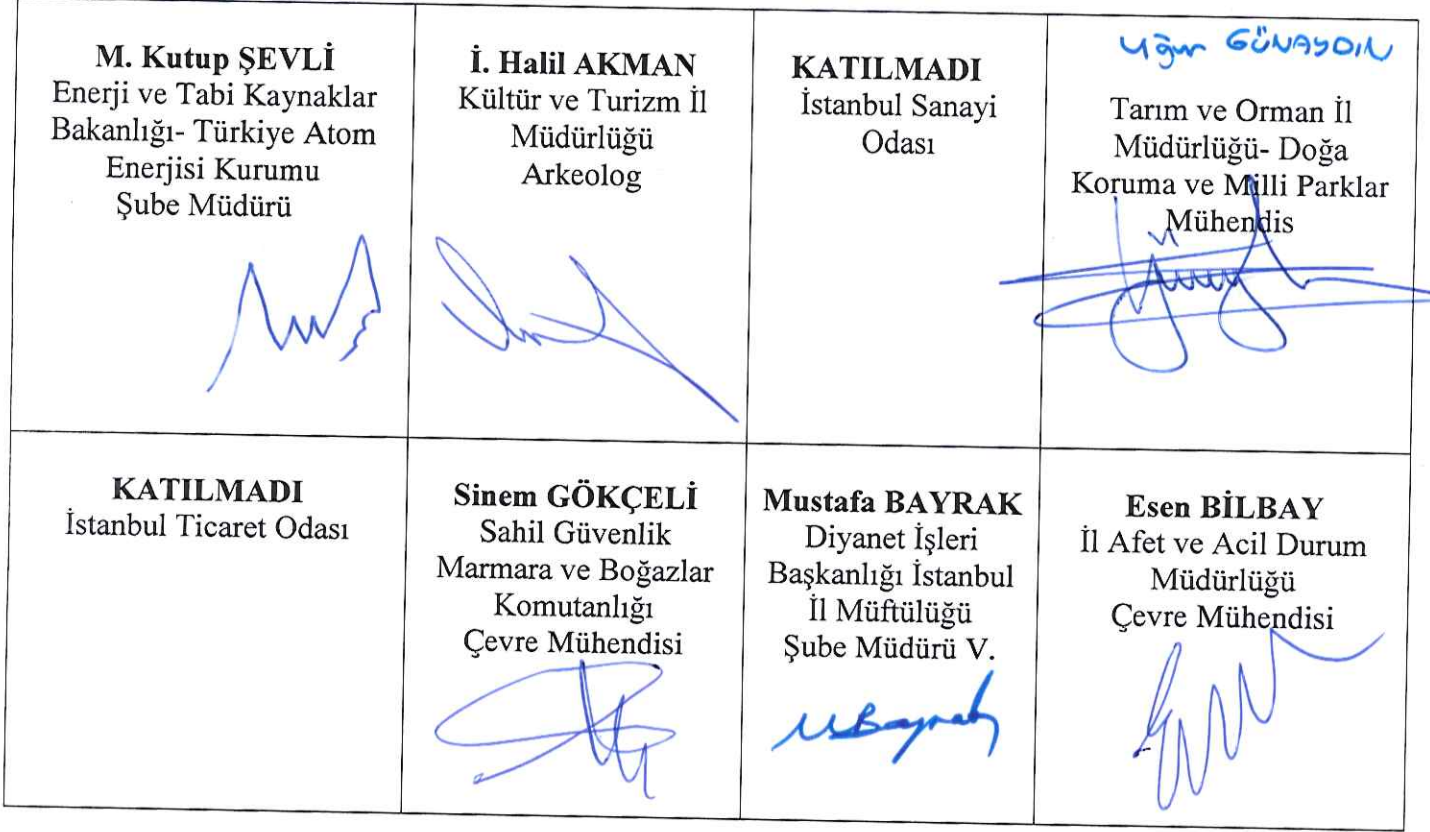 M. Kutup ŞEVLİ
Enerji ve Tabi Kaynaklar
Bakanlığı- Türkiye Atom
Enerjisi Kurumu
Şube Müdürü
İ. Halil AKMAN
Kültür ve Turizm İl
Müdürlüğü
Arkeolog
KATILMADI
İstanbul Sanayi
Odası
Uğur GÜNAYDIN
Tarım ve Orman İl
Müdürlüğü- Doğa
Koruma ve Milli Parklar
Mühendis
KATILMADI
İstanbul Ticaret Odası
Sinem GÖKÇELİ
Sahil Güvenlik
Marmara ve Boğazlar
Komutanlığı
Çevre Mühendisi
Mustafa BAYRAK
Diyanet İşleri
Başkanlığı İstanbul
İl Müftülüğü
Şube Müdürü V.
MBayrak
Esen BİLBAY
İl Afet ve Acil Durum
Müdürlüğü
Çevre Mühendisi